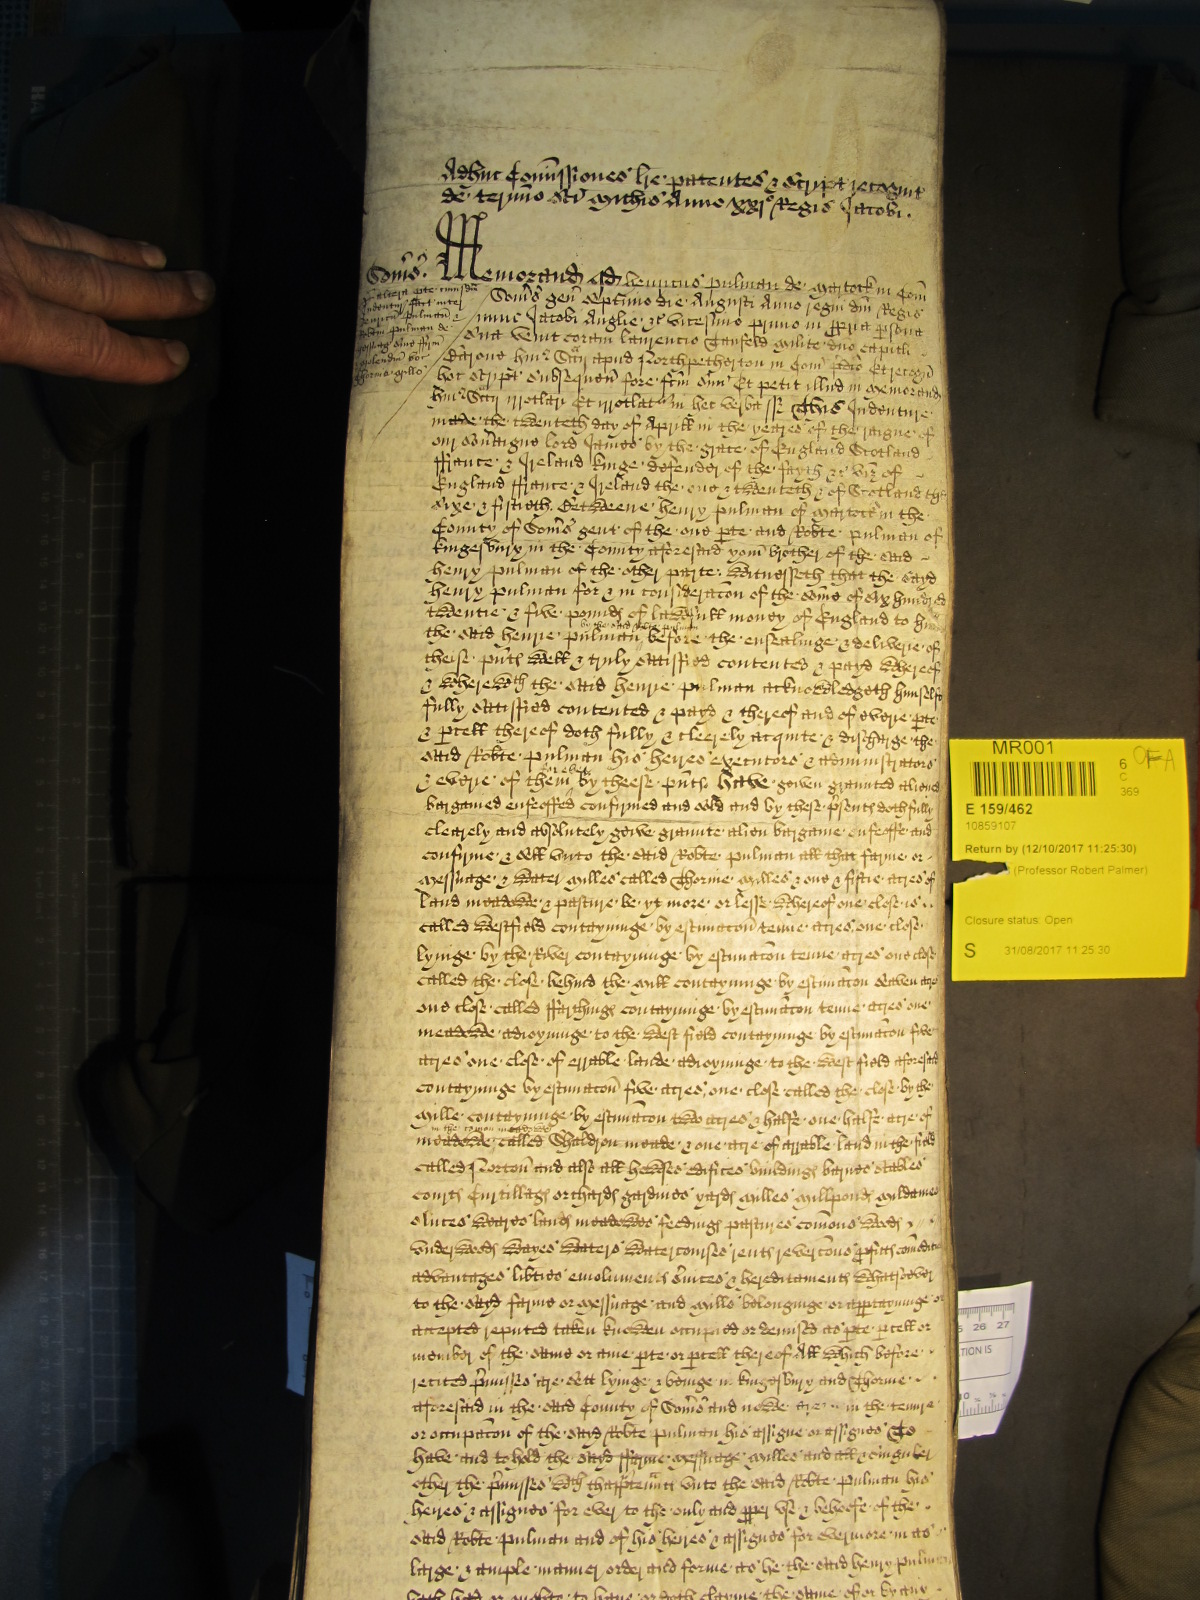 Adhuc Comissiones lre patentes & script recognit
de termio sci Michis Anno xxj Regis Jacobi.
Soms. Memorand qd henricus Pulman de Martock in Com
Soms gen Septimo die Augusti Anno regni dni Regis
nunc Jacobi Anglie &c vicesimo primo in ppria psona
sua venit coram Laurencio Tanfeld milite duo capitli
Barone huius Scaccii apud Northpetherton in Com pdco Et recogn
hoc script subsequen fore fcm suu Et petit illud in memorand
huius Scaccii irrotlari Et irrotlatur in hec verba ss This Indenture
made the twenteth day of Aprill in the yeares of the raigne of
our Soveraigne lord James by the grace of England Scotland
ffrance & Ireland kinge defender of the fayth &c viz of
England ffrance & Ireland the one & twenteth & of Scotland the
sixe & fiftieth. Betweene henry Pulman of Martock in the
County of Soms gent of the one pte and Robte Pulman of
kingesbury in the County aforesaid yom brother of the said
henry Pulman of the other parte. Witnesseth that the sayd
henry Pulman for & in consideracon of the some of six hundred
twentie & five pounds of lawfull money of England to him
by the said Robte Pulman
the said henrie Pulman before the ensealinge & deliverie of
theise pnts well & truly satisfied contented & payd whereof
& wherewth the said henrie Pulman acknowledgeth himselfe
fully satisfied contented & payd & thereof and of everie pte
& pcell thereof doth fully & cleerely acquite & discharge the
said Robte Pulman his heires executors & administrators
& everie of them for ever by theese pnts. Have given graunted aliened
bargained enfeoffed confirmed and sold and by these psents doth fully
cleerely and absolutely geive graunte alien bargaine enfeoffe and
confirme & sell unto the said Robte Pulman all that farme or
Messuage & Water Milles called Thorne Milles & one & fiftie acres of
land meadowe & pasture be yt more or lesse whereof one close is
called Westfield contayninge by estimacon tenne acres, one close
lyinge by the River contayninge by estimacon tenne acres one close
called the close behind the Mill contayninge by estimacon seaven acres
one close called ffarthings contayninge by estimacon tenne acres one
meadowe adioyninge to the West field contayninge by estimacon five
acres one close of errable lande adioyninge to the West field aforesaid
contayninge by estimacon five acres, one close called the close by the
Mille contayninge by estimacon two acres & halfe one halfe acre of
in the comon meadowe
meadowe called Shaldron meade & one acre of arrable land in the field
called Norton and also all howses edifices buildings barnes stables
courts Curtillags orchards gardines yards Milles Millponds Mildames
sluces Weares lands meadowes feedings pastures comons woods
underwoods wayes waters watercourses rents revercons pfitts comodities
advantages libties emoluments suites & hereditaments whatsoever
to the sayd farme or Messuage and Mills belonginge or appertayninge or
accepted reputed taken knowen occupied or demised as pte pcell or
member of the same or anie pte or pcell thereof All which before
recited pmisses are sett lyinge & beinge in kingesbury and Thorne
aforesaid in the said County of Soms and nowe are in the tenure
or occupacon of the sayd Robte Pulman his assigne or assignes To
have and to hold the sayd ffarme Messuage Milles and all & singuler
other the pmisses wth thapptennces unto the said Robte Pulman his
heires & assignes for ever to the only and pper use & behoofe of the
said Robte Pulman and of his heires & assignes for evermore in as
large & ample manner order and forme as he the said henry Pulman
hath had or oughte to have or doth clayme the same of or by any
MR001
6
C
369
E 159/462
10859107
Return by (12/10/2017 11:25:30)
(Professor Robert Palmer)
Closure status: Open
S 31/08/2017 11:25:30
26 27